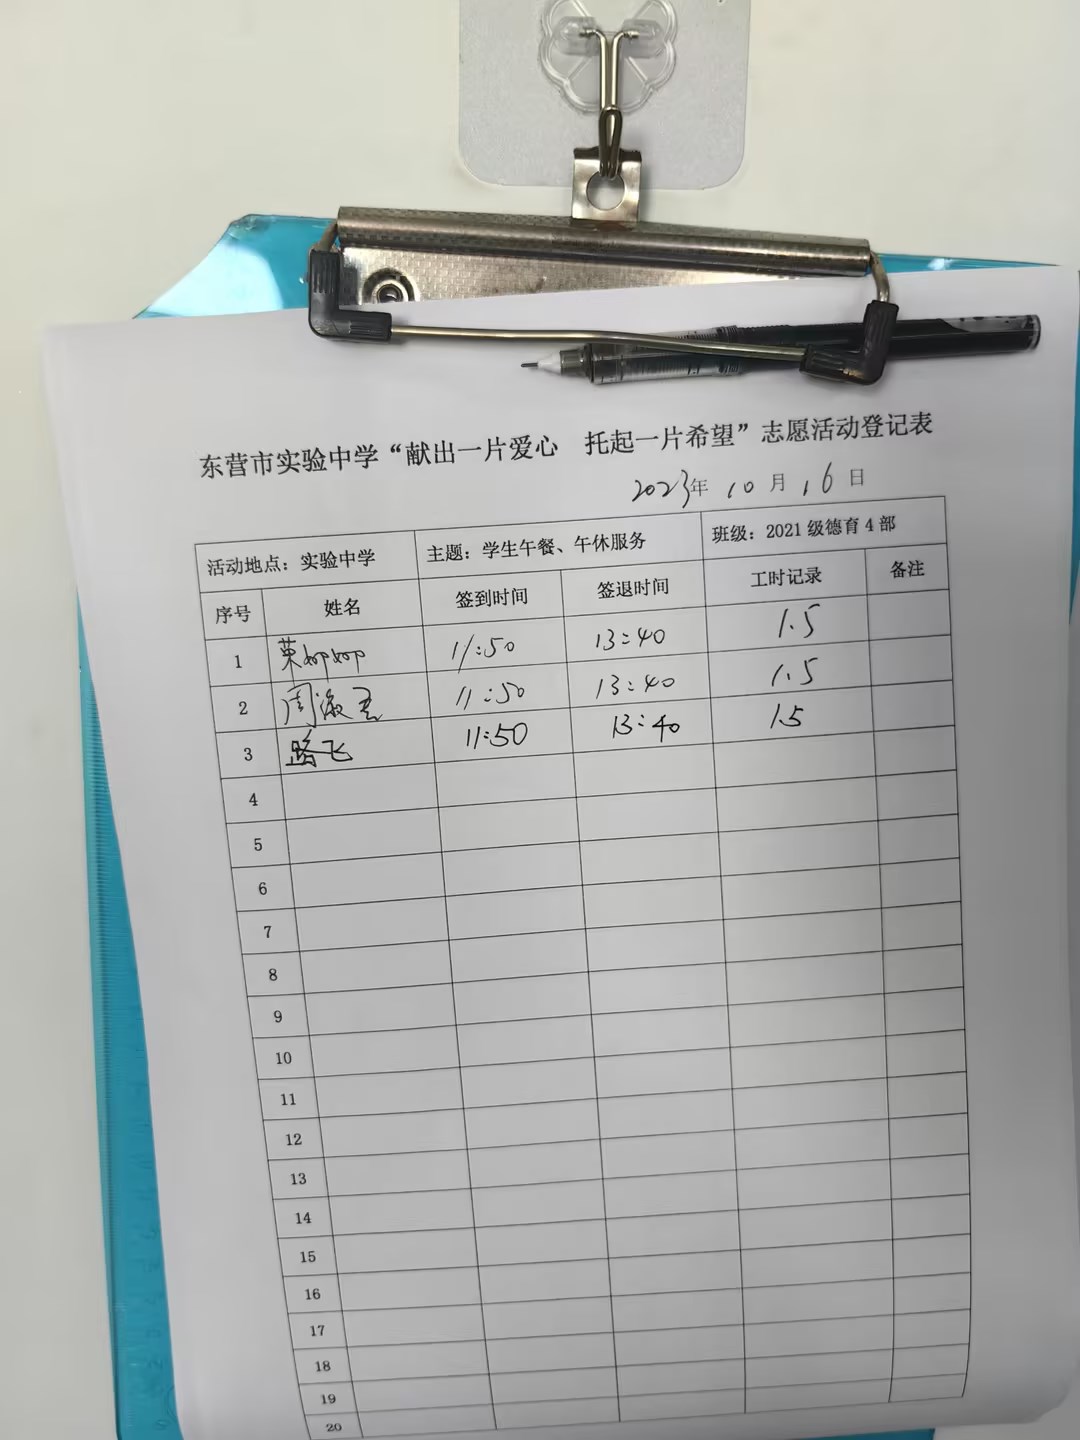 东营市实验中学“献出一片爱心 托起一片希望”志愿活动登记表
2023年 10 月 16 日
活动地点：实验中学 主题：学生午餐、午休服务 班级：2021级德育4部
序号 姓名 签到时间 签退时间 工时记录 备注
1 11:50 13:40 1.5
2 周 11:50 13:40 1.5
3 路飞 11:50 13:40 1.5
4
5
6
7
8
9
10
11
12
13
14
15
16
17
18
19
20